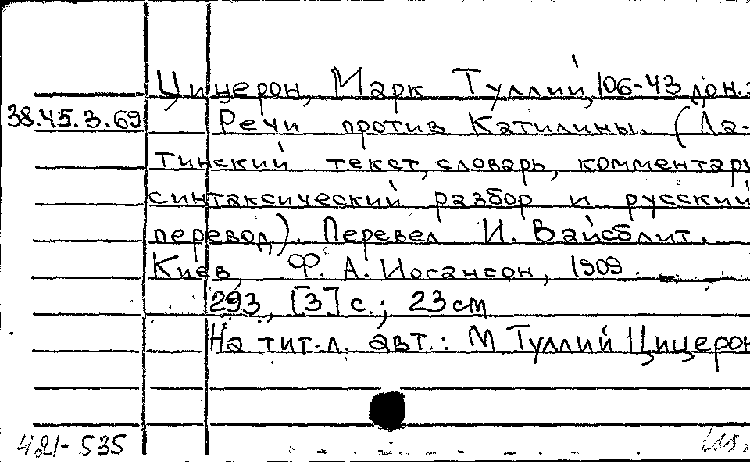 Цицерон, Марк Туллий, 106-43 до н.э
38.45.3.69 Речи против Катилины. (Ла-
тинский текст, словарь, комментарь
синтаксический разбор и русский
перевод). Перевел И. Вайсблит.
Киев, Ф. А. Иогансон, 1909
293, [3] с.; 23 см
На тит. л. авт.: М Туллий Цицерон
421-535